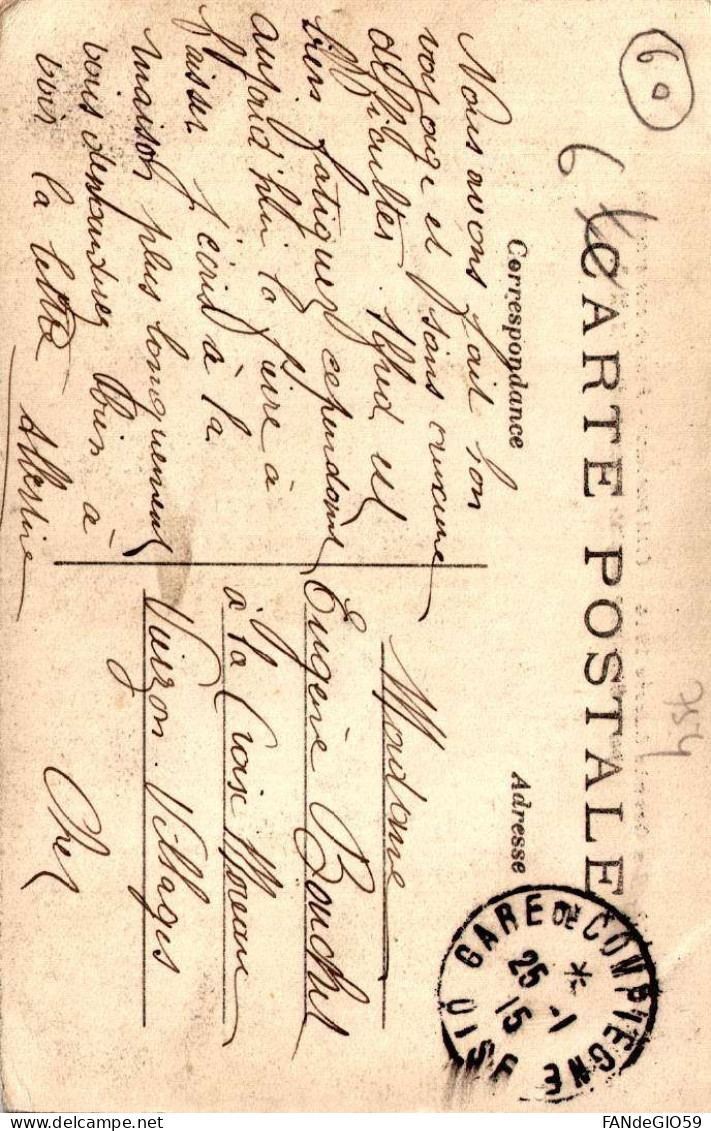 CARTE POSTALE
Correspondance
Adresse
Nous avons fait bon
voyage et sans aucune
difficultés. Alfred est
bien fatigué cependant,
aujourd'hui la fièvre à
baisser j'écris à la
maison plus longuement
vous demanderez bien à
voir la lettre
Albertine
Madame
Eugène Bouchet
à la Croix Moreau
Vierzon-Villages
Cher
GARE DE COMPIEGNE
25 -1
15
OISE
60
6
754
FANdeGIO59